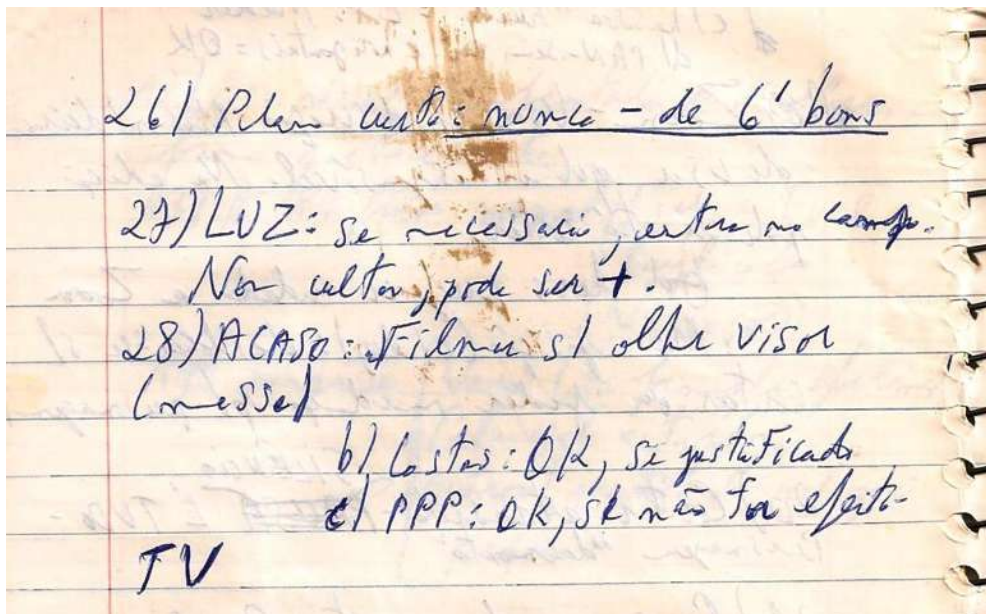 26) Plano curto: nunca - de 6' bons
27) LUZ: se necessário, entra no campo.
Nos cultos, pode ser +.
28) ACASO: Filmar s/ olhar visor
(messe)
b) Costas: OK, se justificada
c) PPP: OK, se não for efeito-
TV